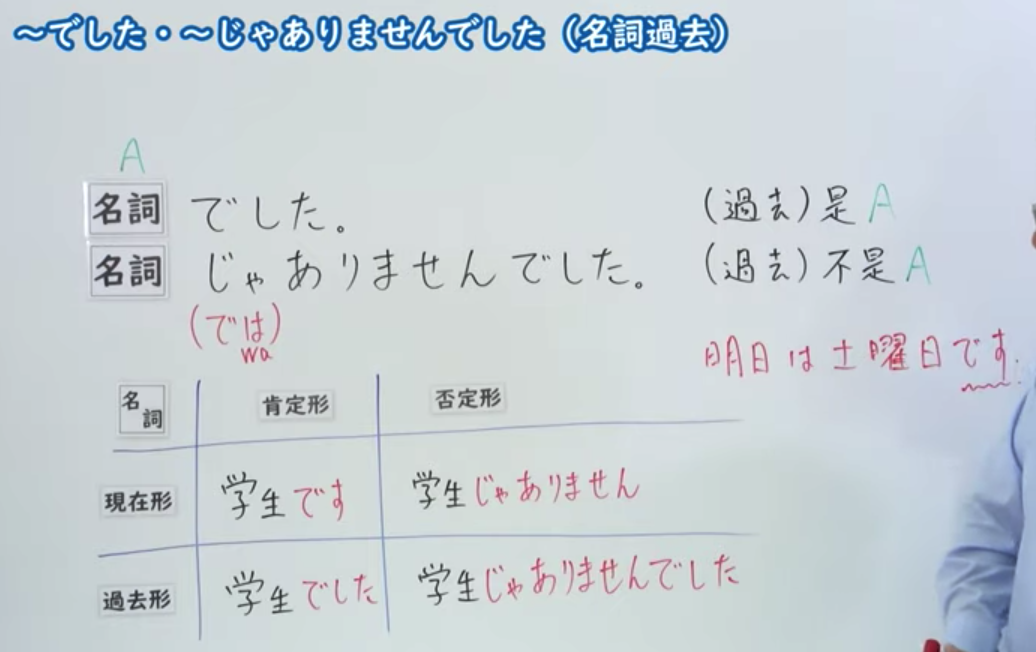 ～でした・～じゃありませんでした（名詞過去）
A
名詞 でした。 (過去)是A
名詞 じゃありませんでした。 (過去)不是A
(では)
wa
明日は土曜日です.
名詞 肯定形 否定形
現在形 学生です 学生じゃありません
過去形 学生でした 学生じゃありませんでした